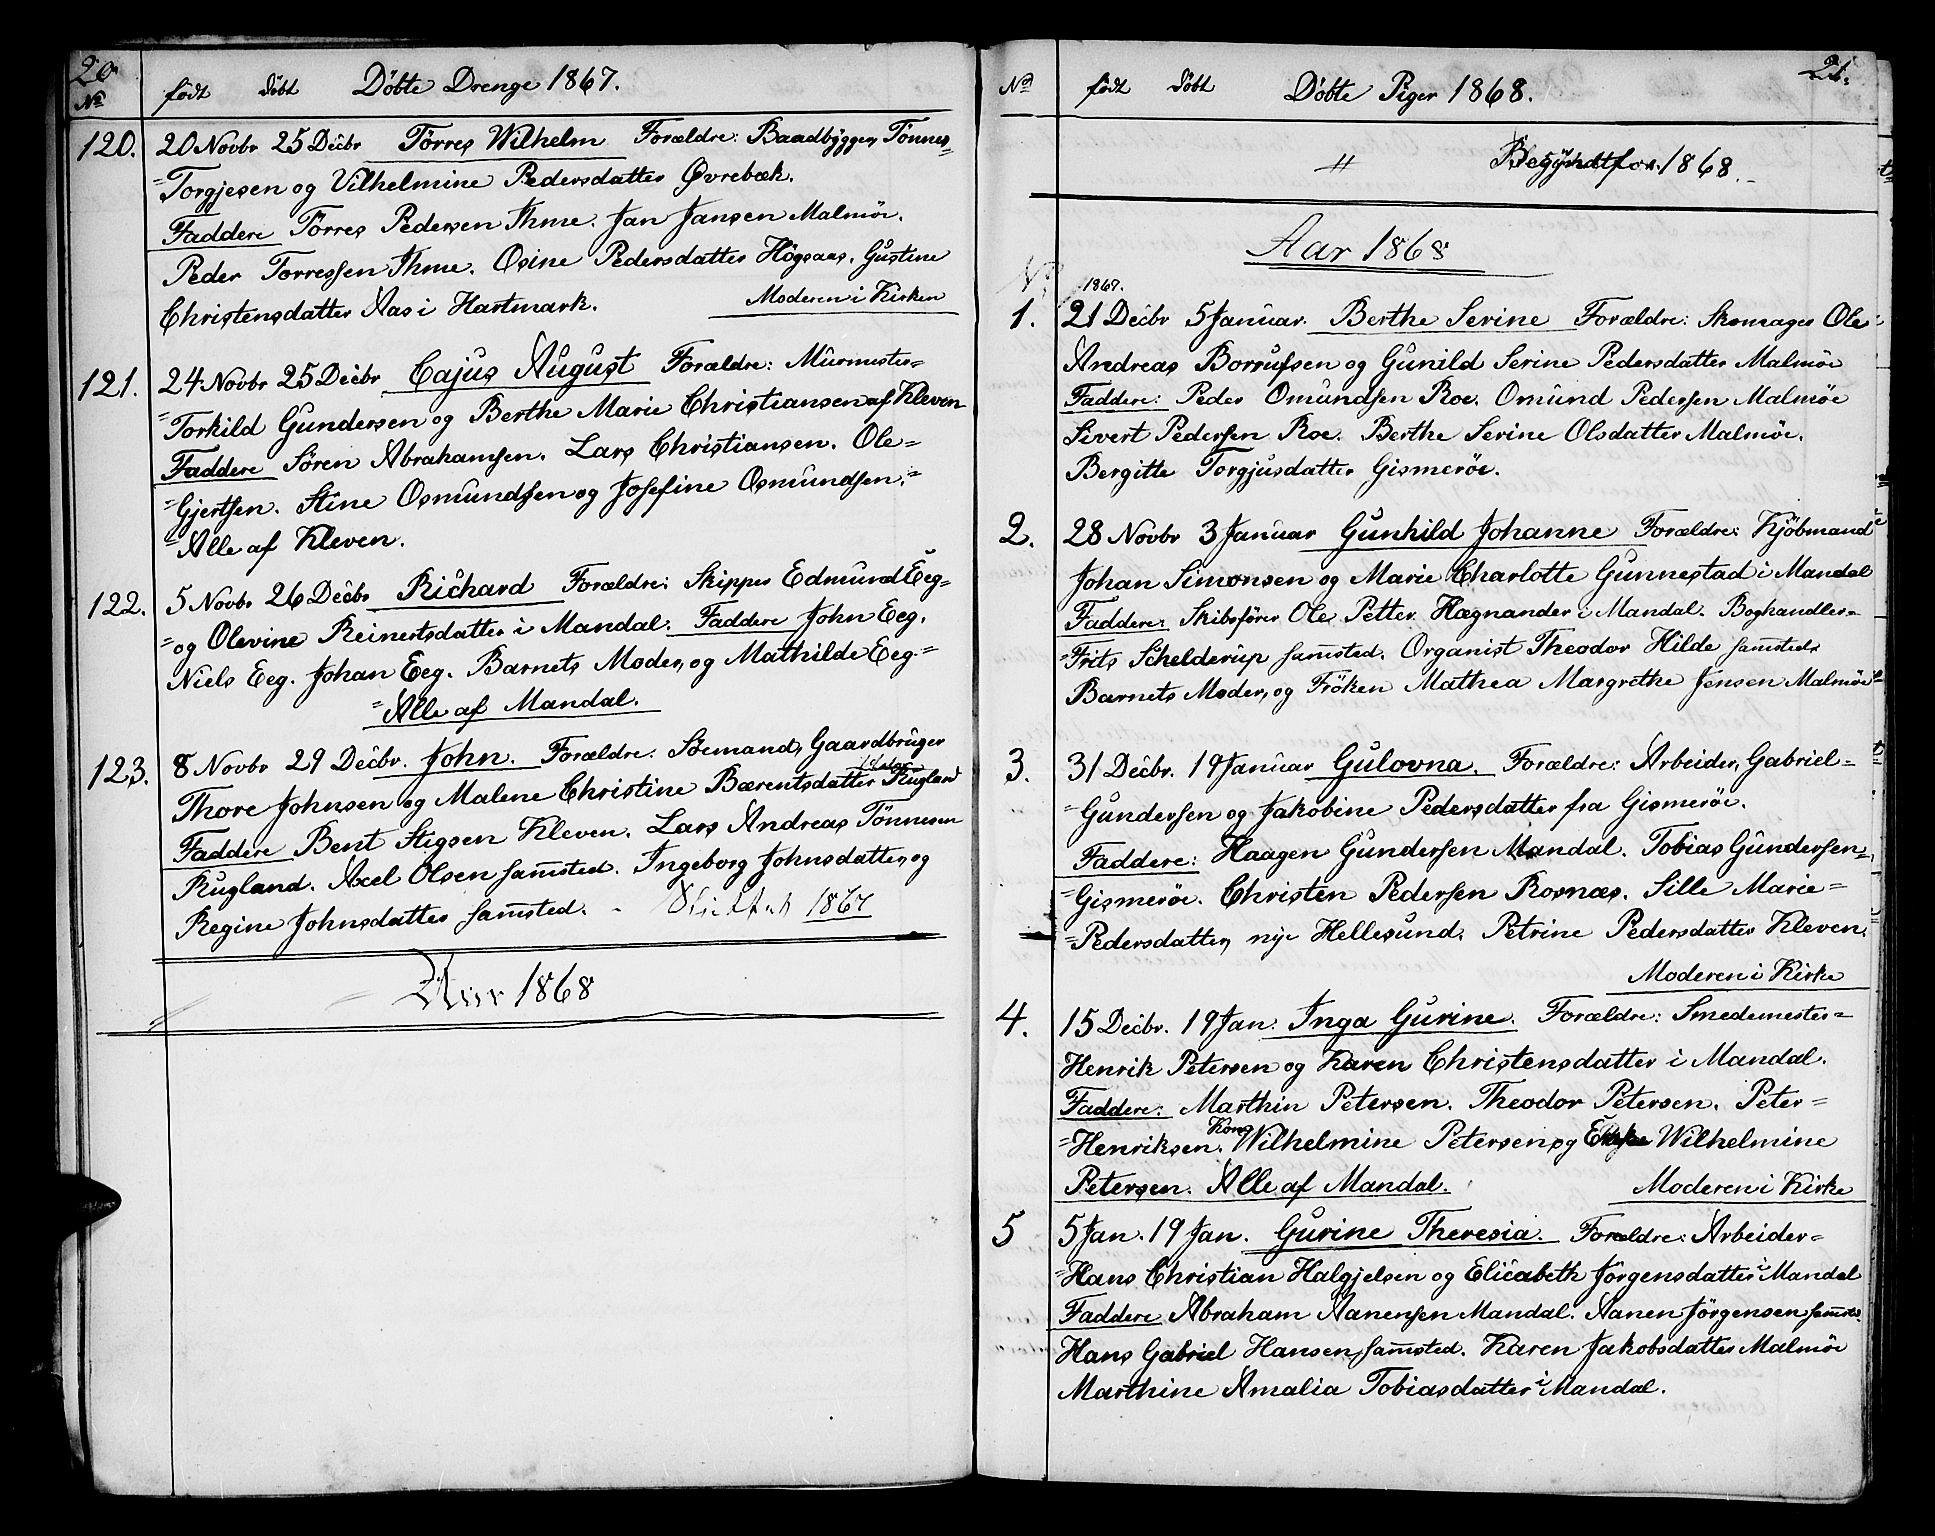 20
No født Döbt Döbte Drenge 1867.
120. 20 Novbr 25 Decbr Törres Wilhelm Forældre: Baadbygger, Tönnes=
=Torgjesen og Vilhelmine Pedersdatter Øvrebæk.
Faddere Törres Pedersen Ihme. Jan Jansen Malmöe.
Peder Torressen Ihme. Osine Pedersdatter Högsaas. Gustine
Christensdatter Aas i Hartmark. Moderen i Kirken
121. 24 Novbr 25 Decbr Cajus August Forældre: Murmester=
=Torkild Gundersen og Berthe Marie Christiansen af Kleven
Faddere Sören Abrahamsen. Lars Christiansen. Ole=
=Gjertsen. Stine Osmundsen og Josefine Osmundsen.=
=Alle af Kleven.
122. 5 Novbr 26 Decbr Richard Forældre: Skipper Edmund Eeg=
=og Olevine Reinertsdatter i Mandal. Faddere John Eeg.
Niels Eeg. Johan Eeg. Barnets Moder, og Mathilde Eeg=
=Alle af Mandal.
123. 8 Novbr 29 Decbr. John. Forældre: Söemand, Gaardbruger
Thore Johnsen og Malene Christine Bærentsdatter Rugland
Faddere Bent Stigsen Kleven. Lars Andreas Tönnesen
Rugland. Axel Olsen samsted. Ingeborg Johnsdatter, og
Regine Johnsdatter samsted. - Sluttet 1867
Aar 1868
21.
No født Döbt Döbte Piger 1868.
" Begyndt for 1868.
Aar 1868
No 1867.
1. 21 Decbr 5 Januar. Berthe Serine Forældre: Skomager Ole
Andreas Borrufsen og Gunild Serine Pedersdatter Malmöe
Faddere: Peder Omundsen Roe. Omund Pedersen Malmöe
Sivert Pedersen Roe. Berthe Serine Olsdatter Malmöe.
Bergitte Torgjusdatter Gismeröe.
2. 28 Novbr 3 Januar Gunhild Johanne Forældre: Kjöbmand
Johan Simonsen og Marie Charlotte Gunnestad i Mandal
Faddere: Skibsförer Ole Petter Hægnander i Mandal. Boghandler=
=Frits Schelderup samsted. Organist Theodor Hilde samsted.
Barnets Moder, og Fröken Mathea Margrethe Jensen Malmöe
3. 31 Decbr. 19 Januar Gulovna. Forældre: Arbeider, Gabriel=
=Gundersen og Jakobine Pedersdatter fra Gismeröe.
Faddere: Haagen Gundersen Mandal. Tobias Gundersen=
=Gismeröe. Christen Pedersen Rosnæs. Sille Marie=
=Pedersdatter, nye Hellesund. Petrine Pedersdatter Kleven.
Moderen i Kirke
4. 15 Decbr. 19 Jan. Inga Gurine. Forældre: Smedemester=
Henrik Petersen og Karen Christensdatter i Mandal.
Faddere: Marthin Petersen. Theodor Petersen. Peter=
=Henriksen. Kone Wilhelmine Petersen og Wilhelmine
Petersen. Alle af Mandal. Moderen i Kirke
5 5 Jan. 19 Jan. Gurine Theresia. Forældre: Arbeider=
=Hans Christian Halgjelsen og Elicabeth Jörgensdatter i Mandal
Faddere Abraham Aanensen Mandal. Aanen Jörgensen samsted.
Hans Gabriel Hansen, samsted. Karen Jakobsdatter Malmöe
Marthine Amalia Tobiasdatter i Mandal.